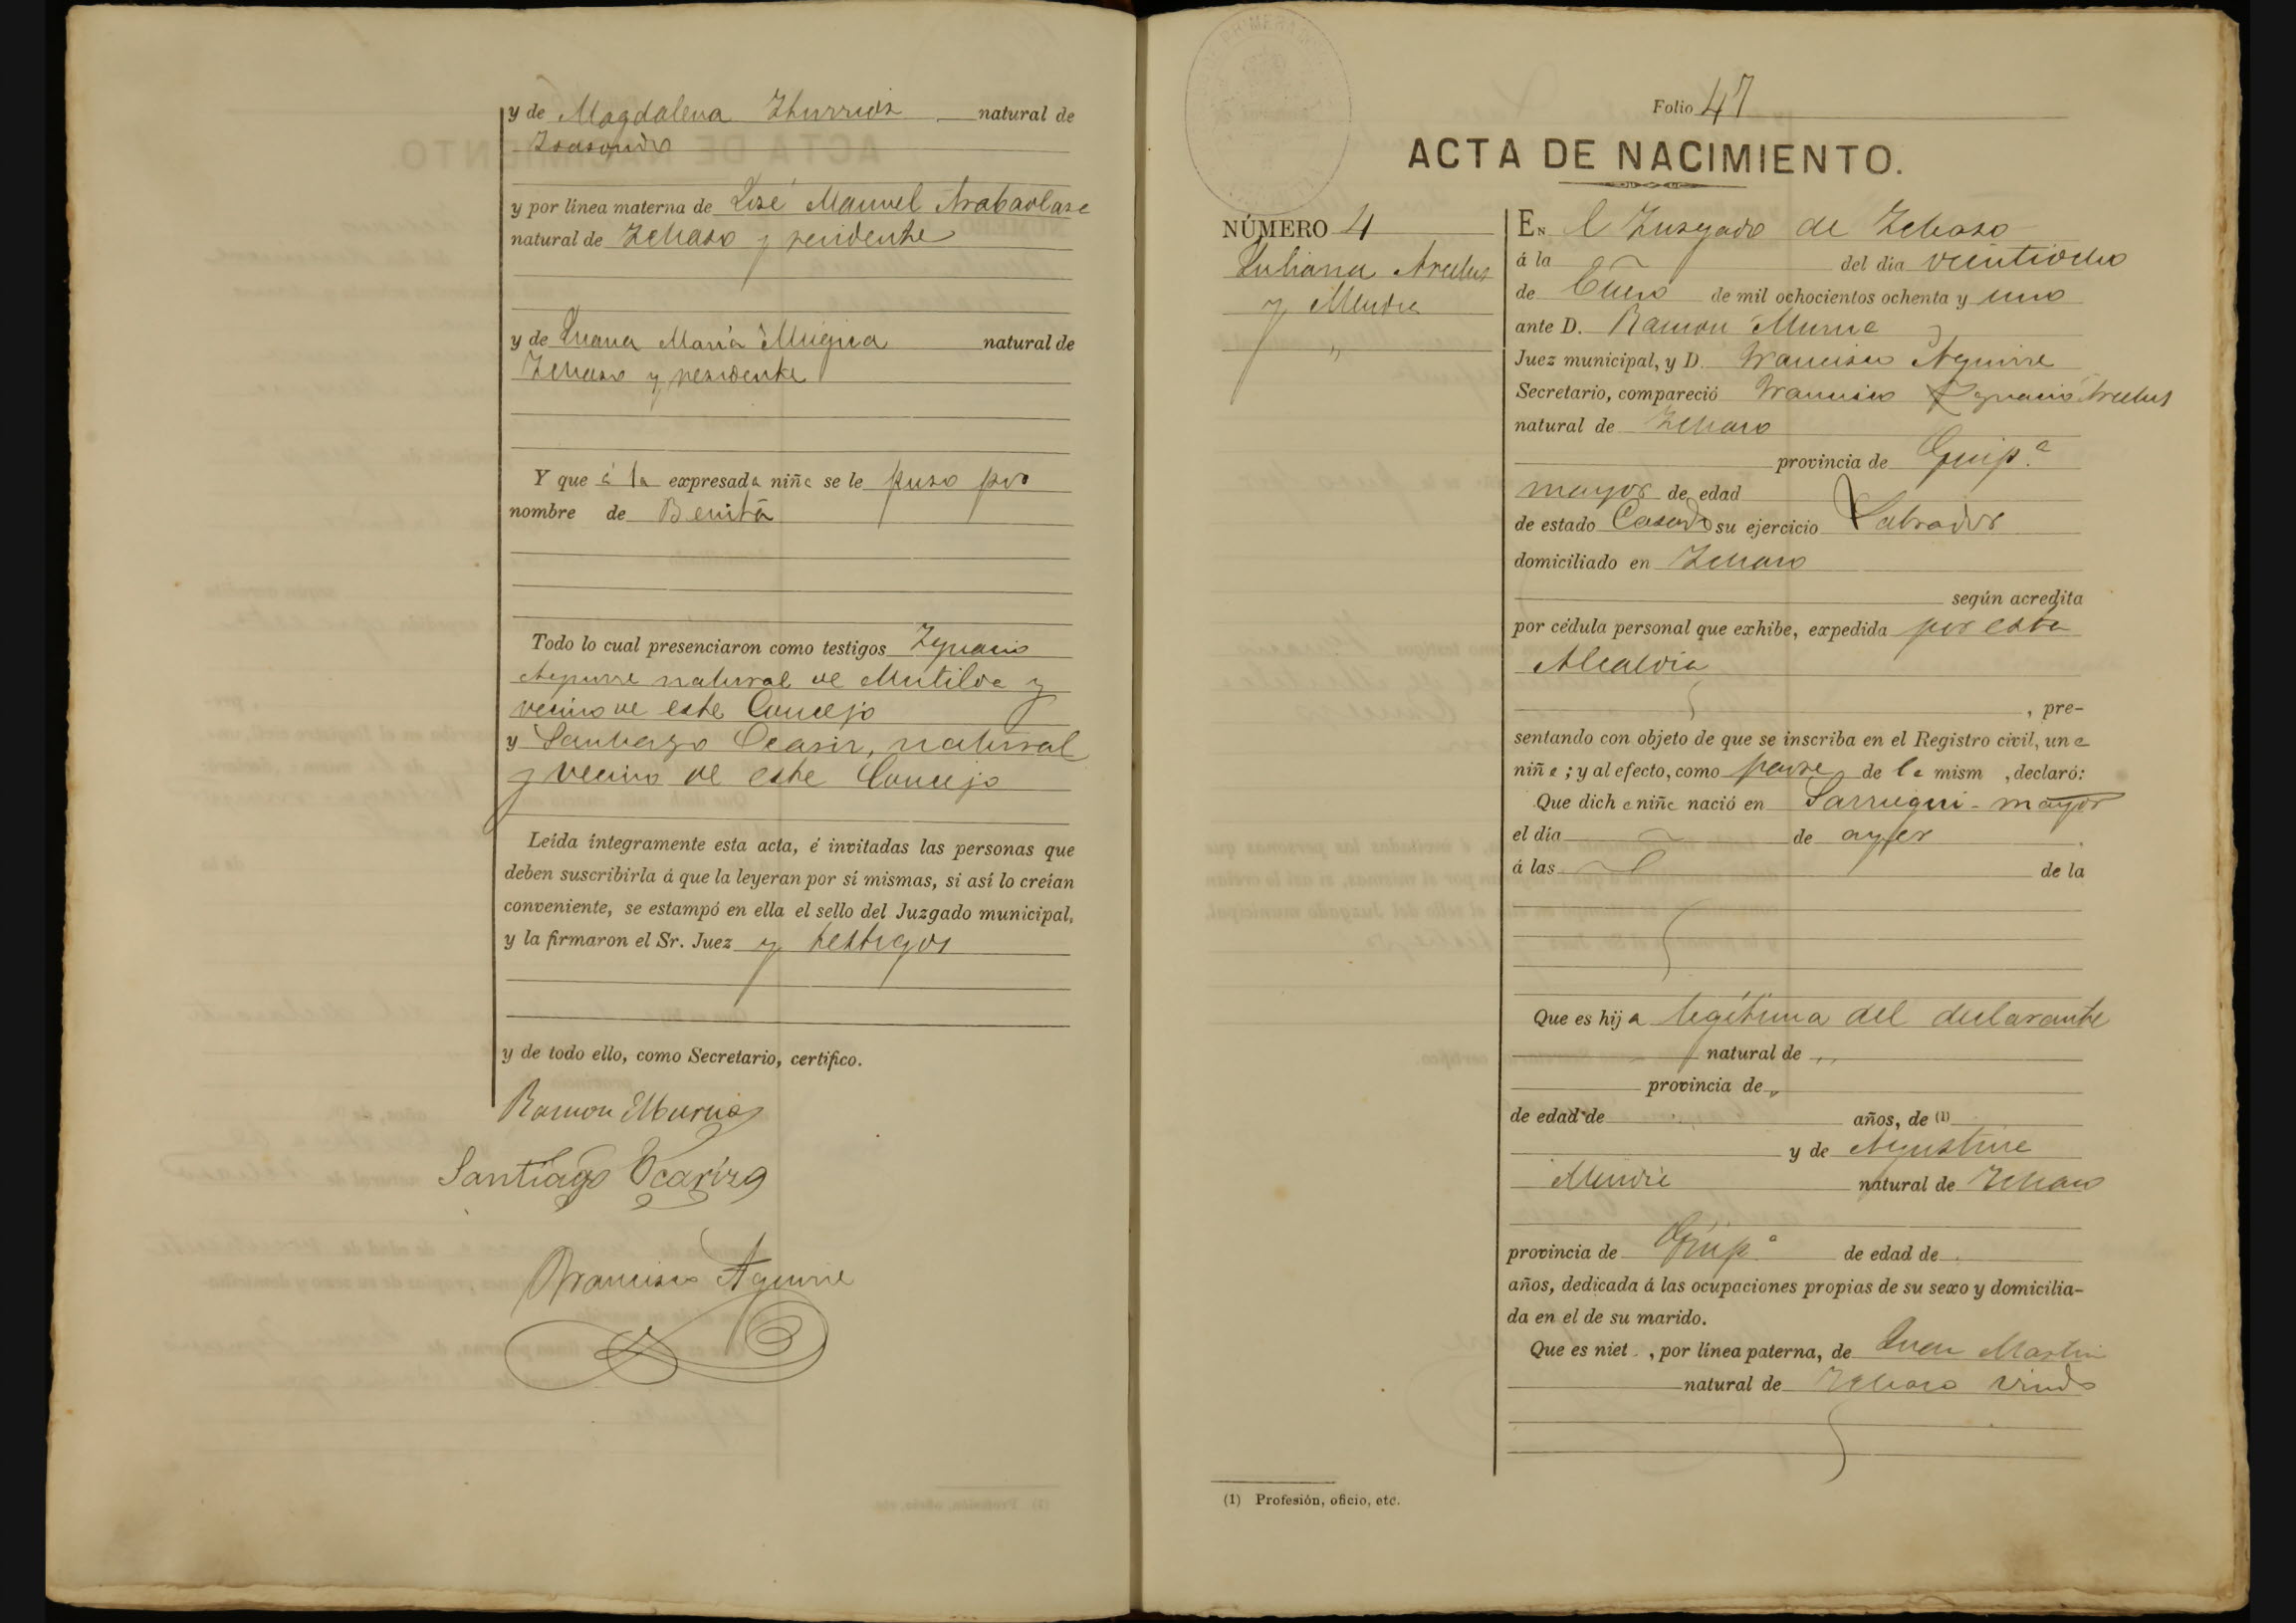 y de Magdalena Iturrioz natural de
Isasondo
y por línea materna de José Manuel Arabaolaza
natural de Ichaso y residente
y de Juana María Mugica natural de
Ichaso y residente
Y que á la expresada niña se le puso por
nombre de Benita
Todo lo cual presenciaron como testigos Ignacio
Aguirre natural de Mutiloa y
vecino de este Concejo
y Santiago Ocariz, natural
y vecino de este Concejo
Leída íntegramente esta acta, é invitadas las personas que
deben suscribirla á que la leyeran por sí mismas, si así lo creían
conveniente, se estampó en ella el sello del Juzgado municipal,
y la firmaron el Sr. Juez y testigos
y de todo ello, como Secretario, certifico.
Ramon Murua
Santiago Ocariz
Francisco Aguirre
Folio 47
ACTA DE NACIMIENTO.
NÚMERO 4
Juliana Arcelus
y
En l Juzgado de Ichaso
á la del día veintiocho
de Enero de mil ochocientos ochenta y uno
ante D. Ramon Murua
Juez municipal, y D. Francisco Aguirre
Secretario, compareció Francisco Ignacio Arcelus
natural de Ichaso
provincia de Guip.a
mayor de edad
de estado Casado su ejercicio Labrador
domiciliado en Ichaso
según acredita
por cédula personal que exhibe, expedida por esta
Alcaldia
, pre-
sentando con objeto de que se inscriba en el Registro civil, una
niña; y al efecto, como padre de la mism , declaró:
Que dicha niña nació en Sarregui-mayor
el día de ayer
á las de la
Que es hija legítima del declarante
natural de ,,
provincia de ,,
de edad de años, de (1)
y de Agustina
natural de Ichaso
provincia de Guip.a de edad de
años, dedicada á las ocupaciones propias de su sexo y domicilia-
da en el de su marido.
Que es niet , por línea paterna, de Juan Martin
natural de Ichaso viudo
(1) Profesión, oficio, etc.